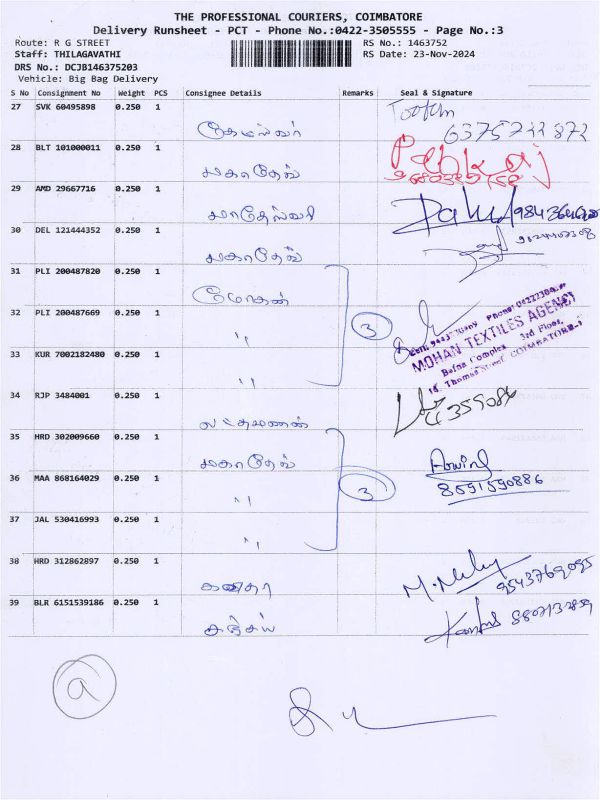 THE PROFESSIONAL COURIERS, COIMBATORE
Delivery Runsheet - PCT - Phone No.:0422-3505555 - Page No.:3
Route: R G STREET RS No.: 1463752
Staff: THILAGAVATHI RS Date: 23-Nov-2024
DRS No.: DCJB146375203
Vehicle: Big Bag Delivery
S No Consignment No Weight PCS Consignee Details Remarks Seal & Signature
27 SVK 60495898 0.250 1
28 BLT 101000011 0.250 1
மகாதேவ்
29 AMD 29667716 0.250 1
மாதேஸ்வரி
30 DEL 121444352 0.250 1
மகாதேவ்
31 PLI 200487820 0.250 1
மோகன்
32 PLI 200487669 0.250 1
" 3
33 KUR 7002182480 0.250 1
"
MOHAN TEXTILES AGENCY
Bafna Complex 3rd Floor,
Thomas Street, COIMBATORE-1
34 RJP 3484001 0.250 1
லட்சுமணன்
35 HRD 302009660 0.250 1
மகாதேவ்
36 MAA 868164029 0.250 1
8591590886
" 3
37 JAL 530416993 0.250 1
"
38 HRD 312862897 0.250 1
கவிதா 9543769095
39 BLR 6151539186 0.250 1
சஞ்சய்
a